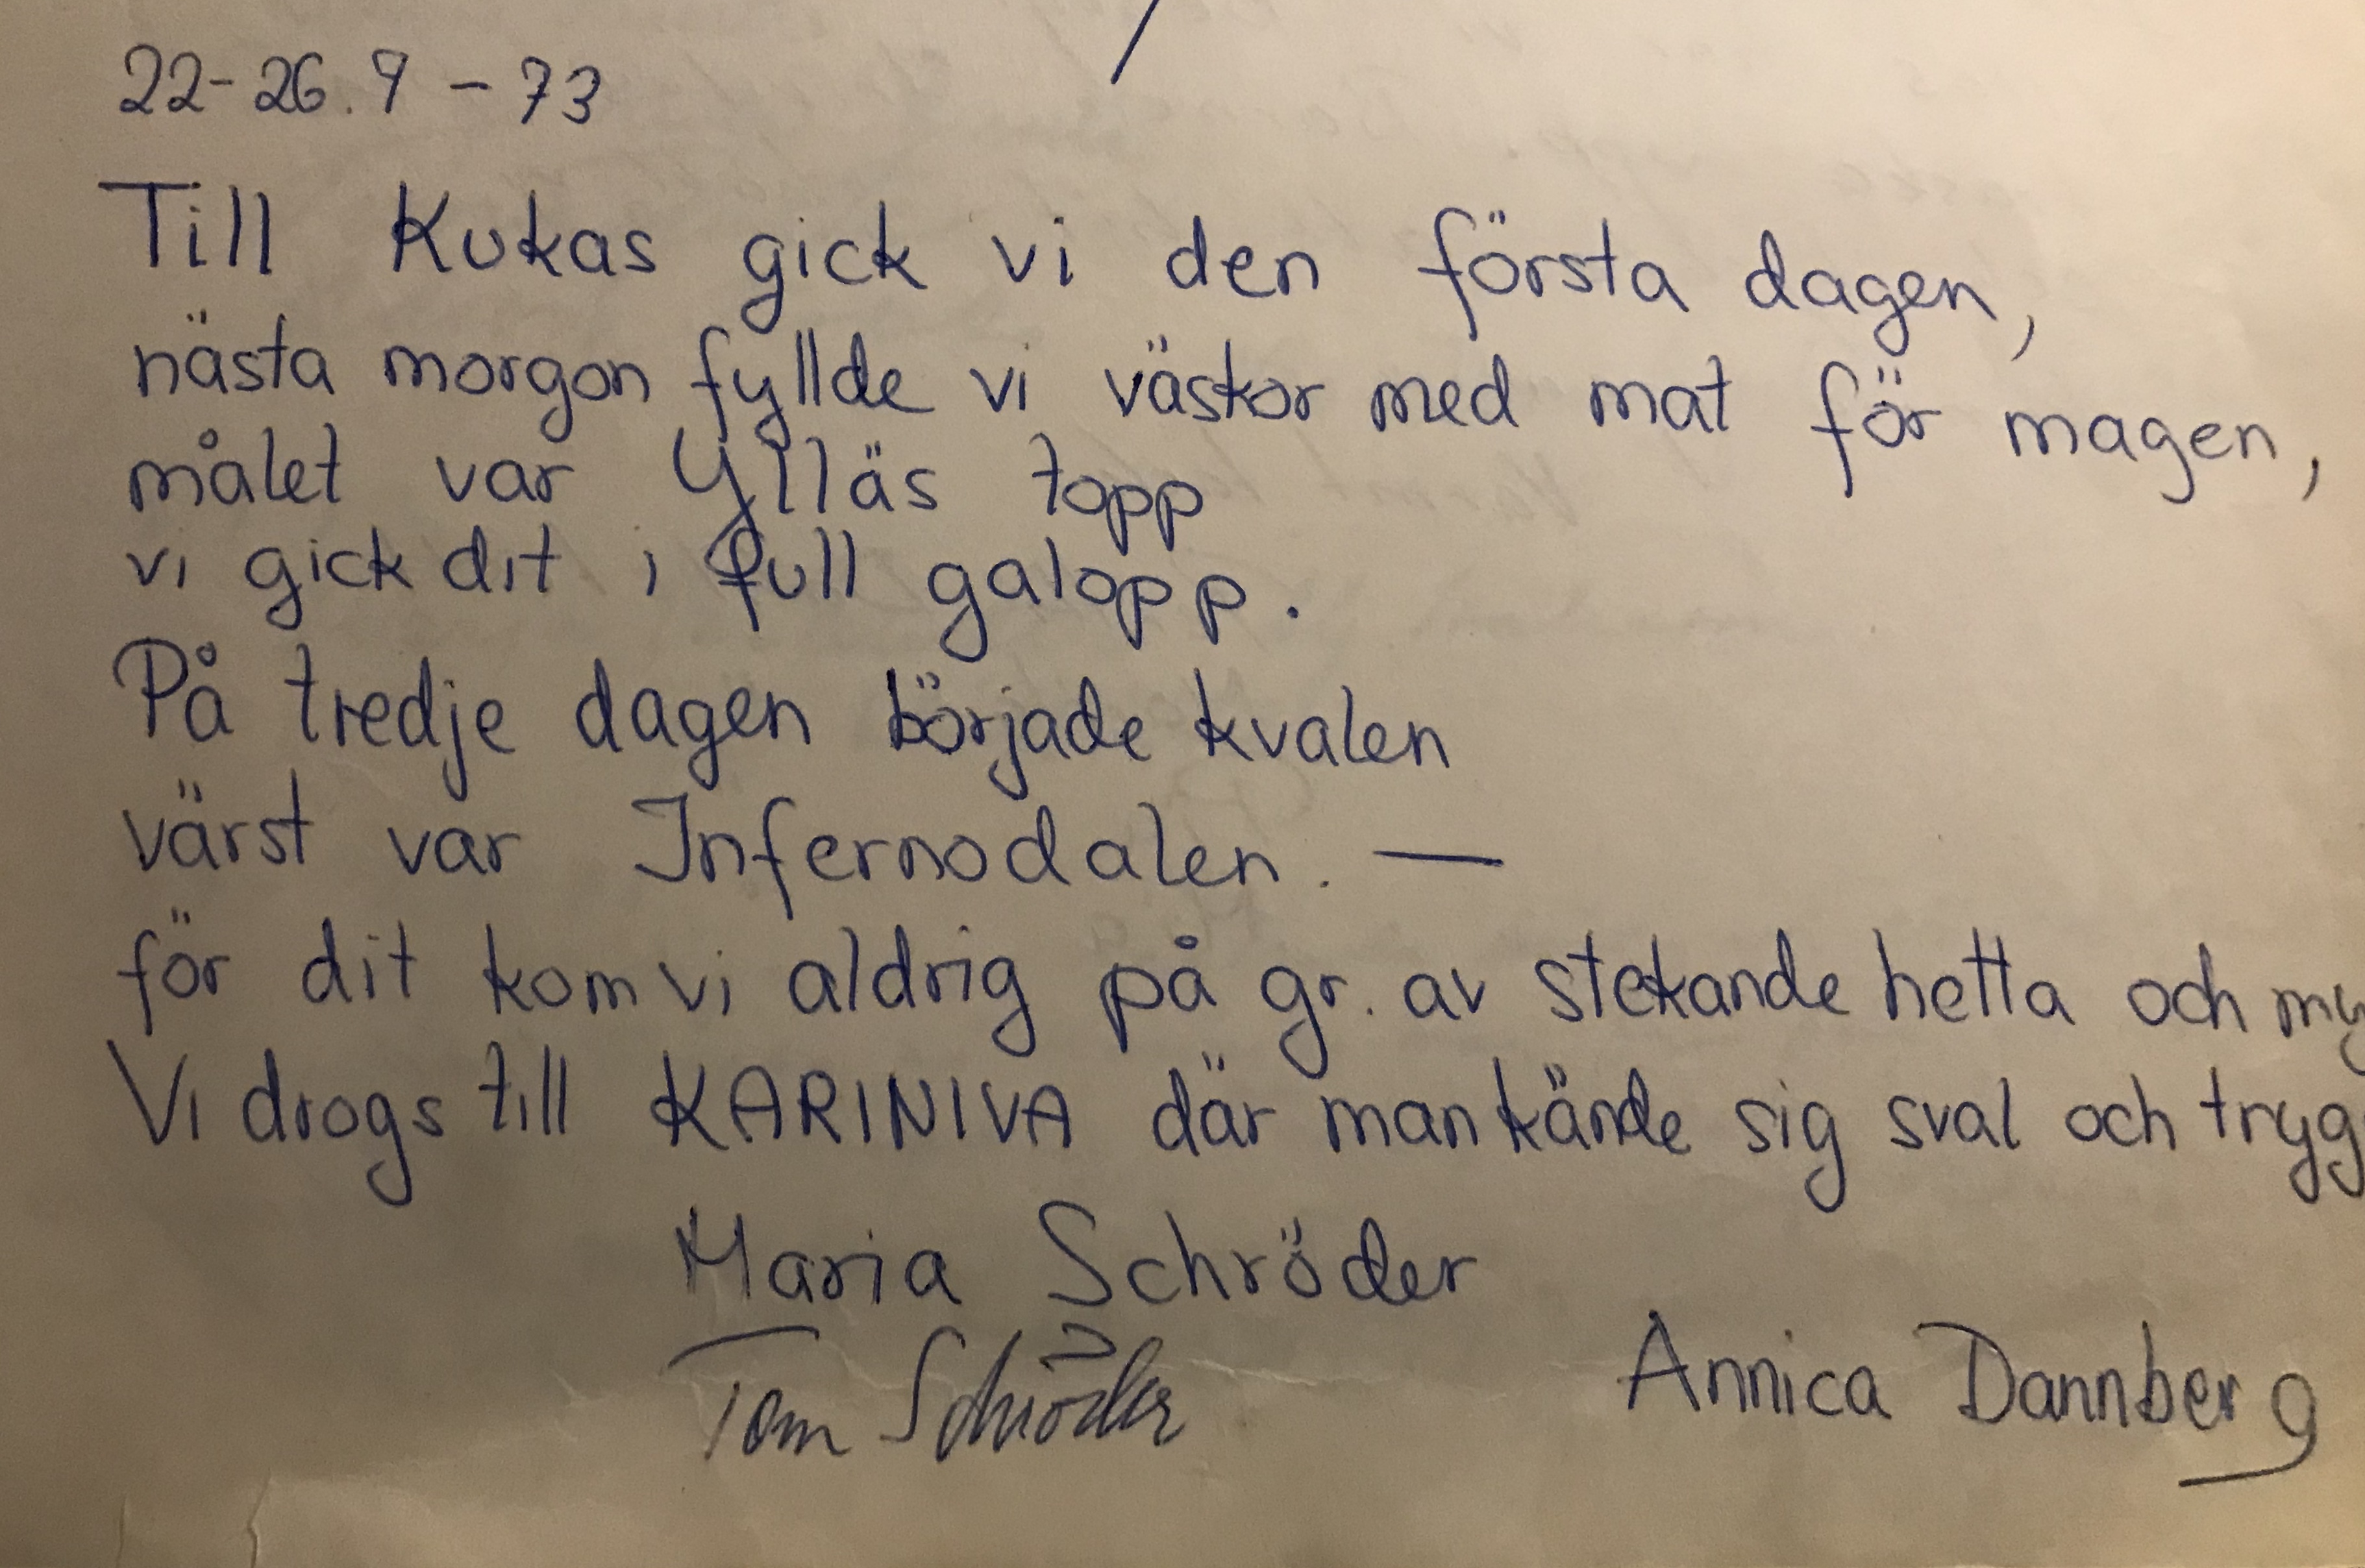 22-26.9-73
Till Kukas gick vi den första dagen,
nästa morgon fyllde vi väskor med mat för magen,
målet var Ylläs topp
vi gick dit i full galopp.
På tredje dagen började kvalen
värst var Infernodalen. —
för dit kom vi aldrig på gr. av stekande hetta och my
Vi drogs till KARINIVA där man kände sig sval och tryg
Maria Schröder
Tom Schröder
Annica Dannberg